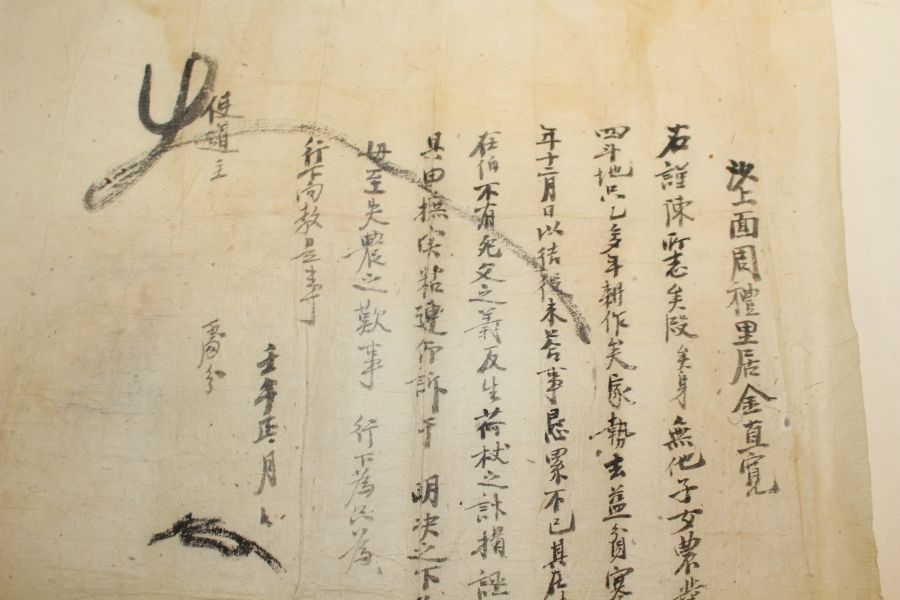 沙上面周禮里居金直寬
右謹陳所志矣段矣身無他子女農業
四斗地只乙多年耕作矣家勢去益貧寒
年十二月日以結後未答事懇累不已其在
在伯不有死父之義反生荷杖之計捐
具由撫实粘連仰訴于 明决之下
毋至失農之歎事 行下為只為
行下向教是事
使道主
壬午正月 日